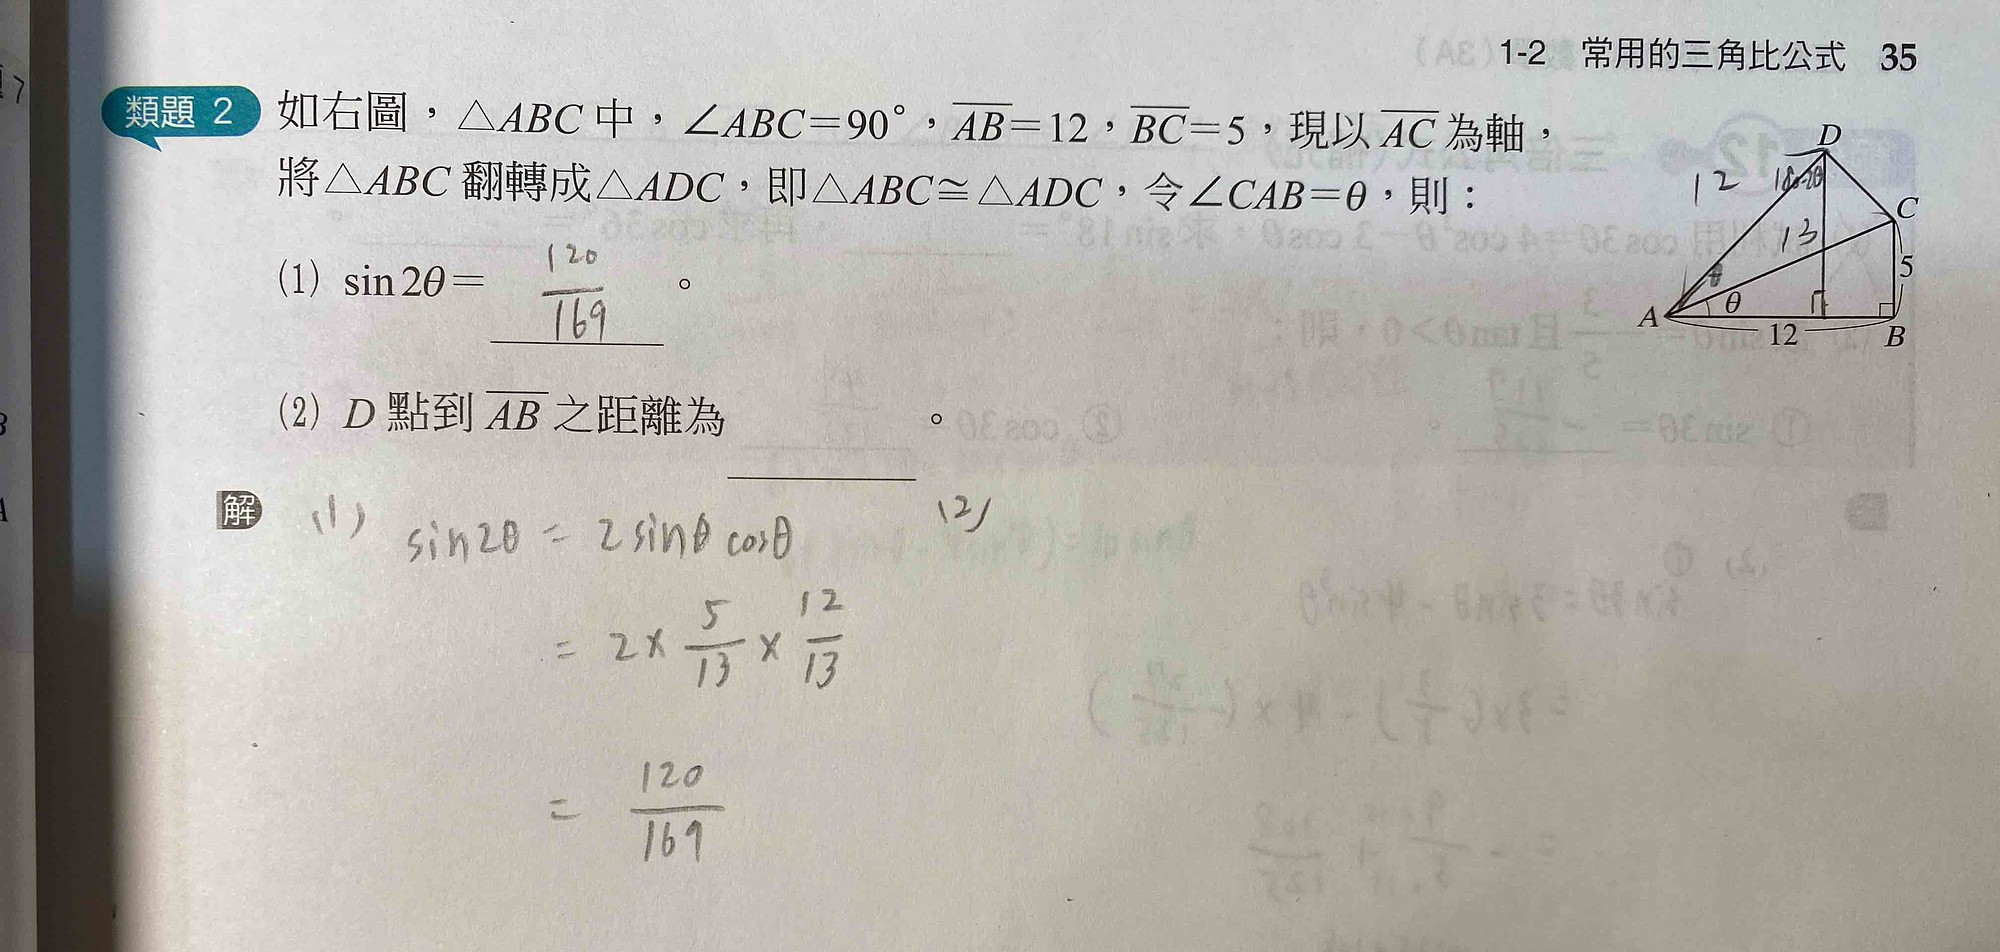 1-2 常用的三角比公式 35
類題 2 如右圖，△ABC 中，∠ABC=90°，AB=12，BC=5，現以 AC 為軸，
將△ABC 翻轉成△ADC，即△ABC≅△ADC，令∠CAB=θ，則：
(1) sin2θ= 120/169 。
(2) D 點到 AB 之距離為 。
D
12
C
13
5
θ
A
θ
12
B
解 (1) sin2θ = 2sinθ cosθ
(2)
= 2 × 5/13 × 12/13
= 120/169